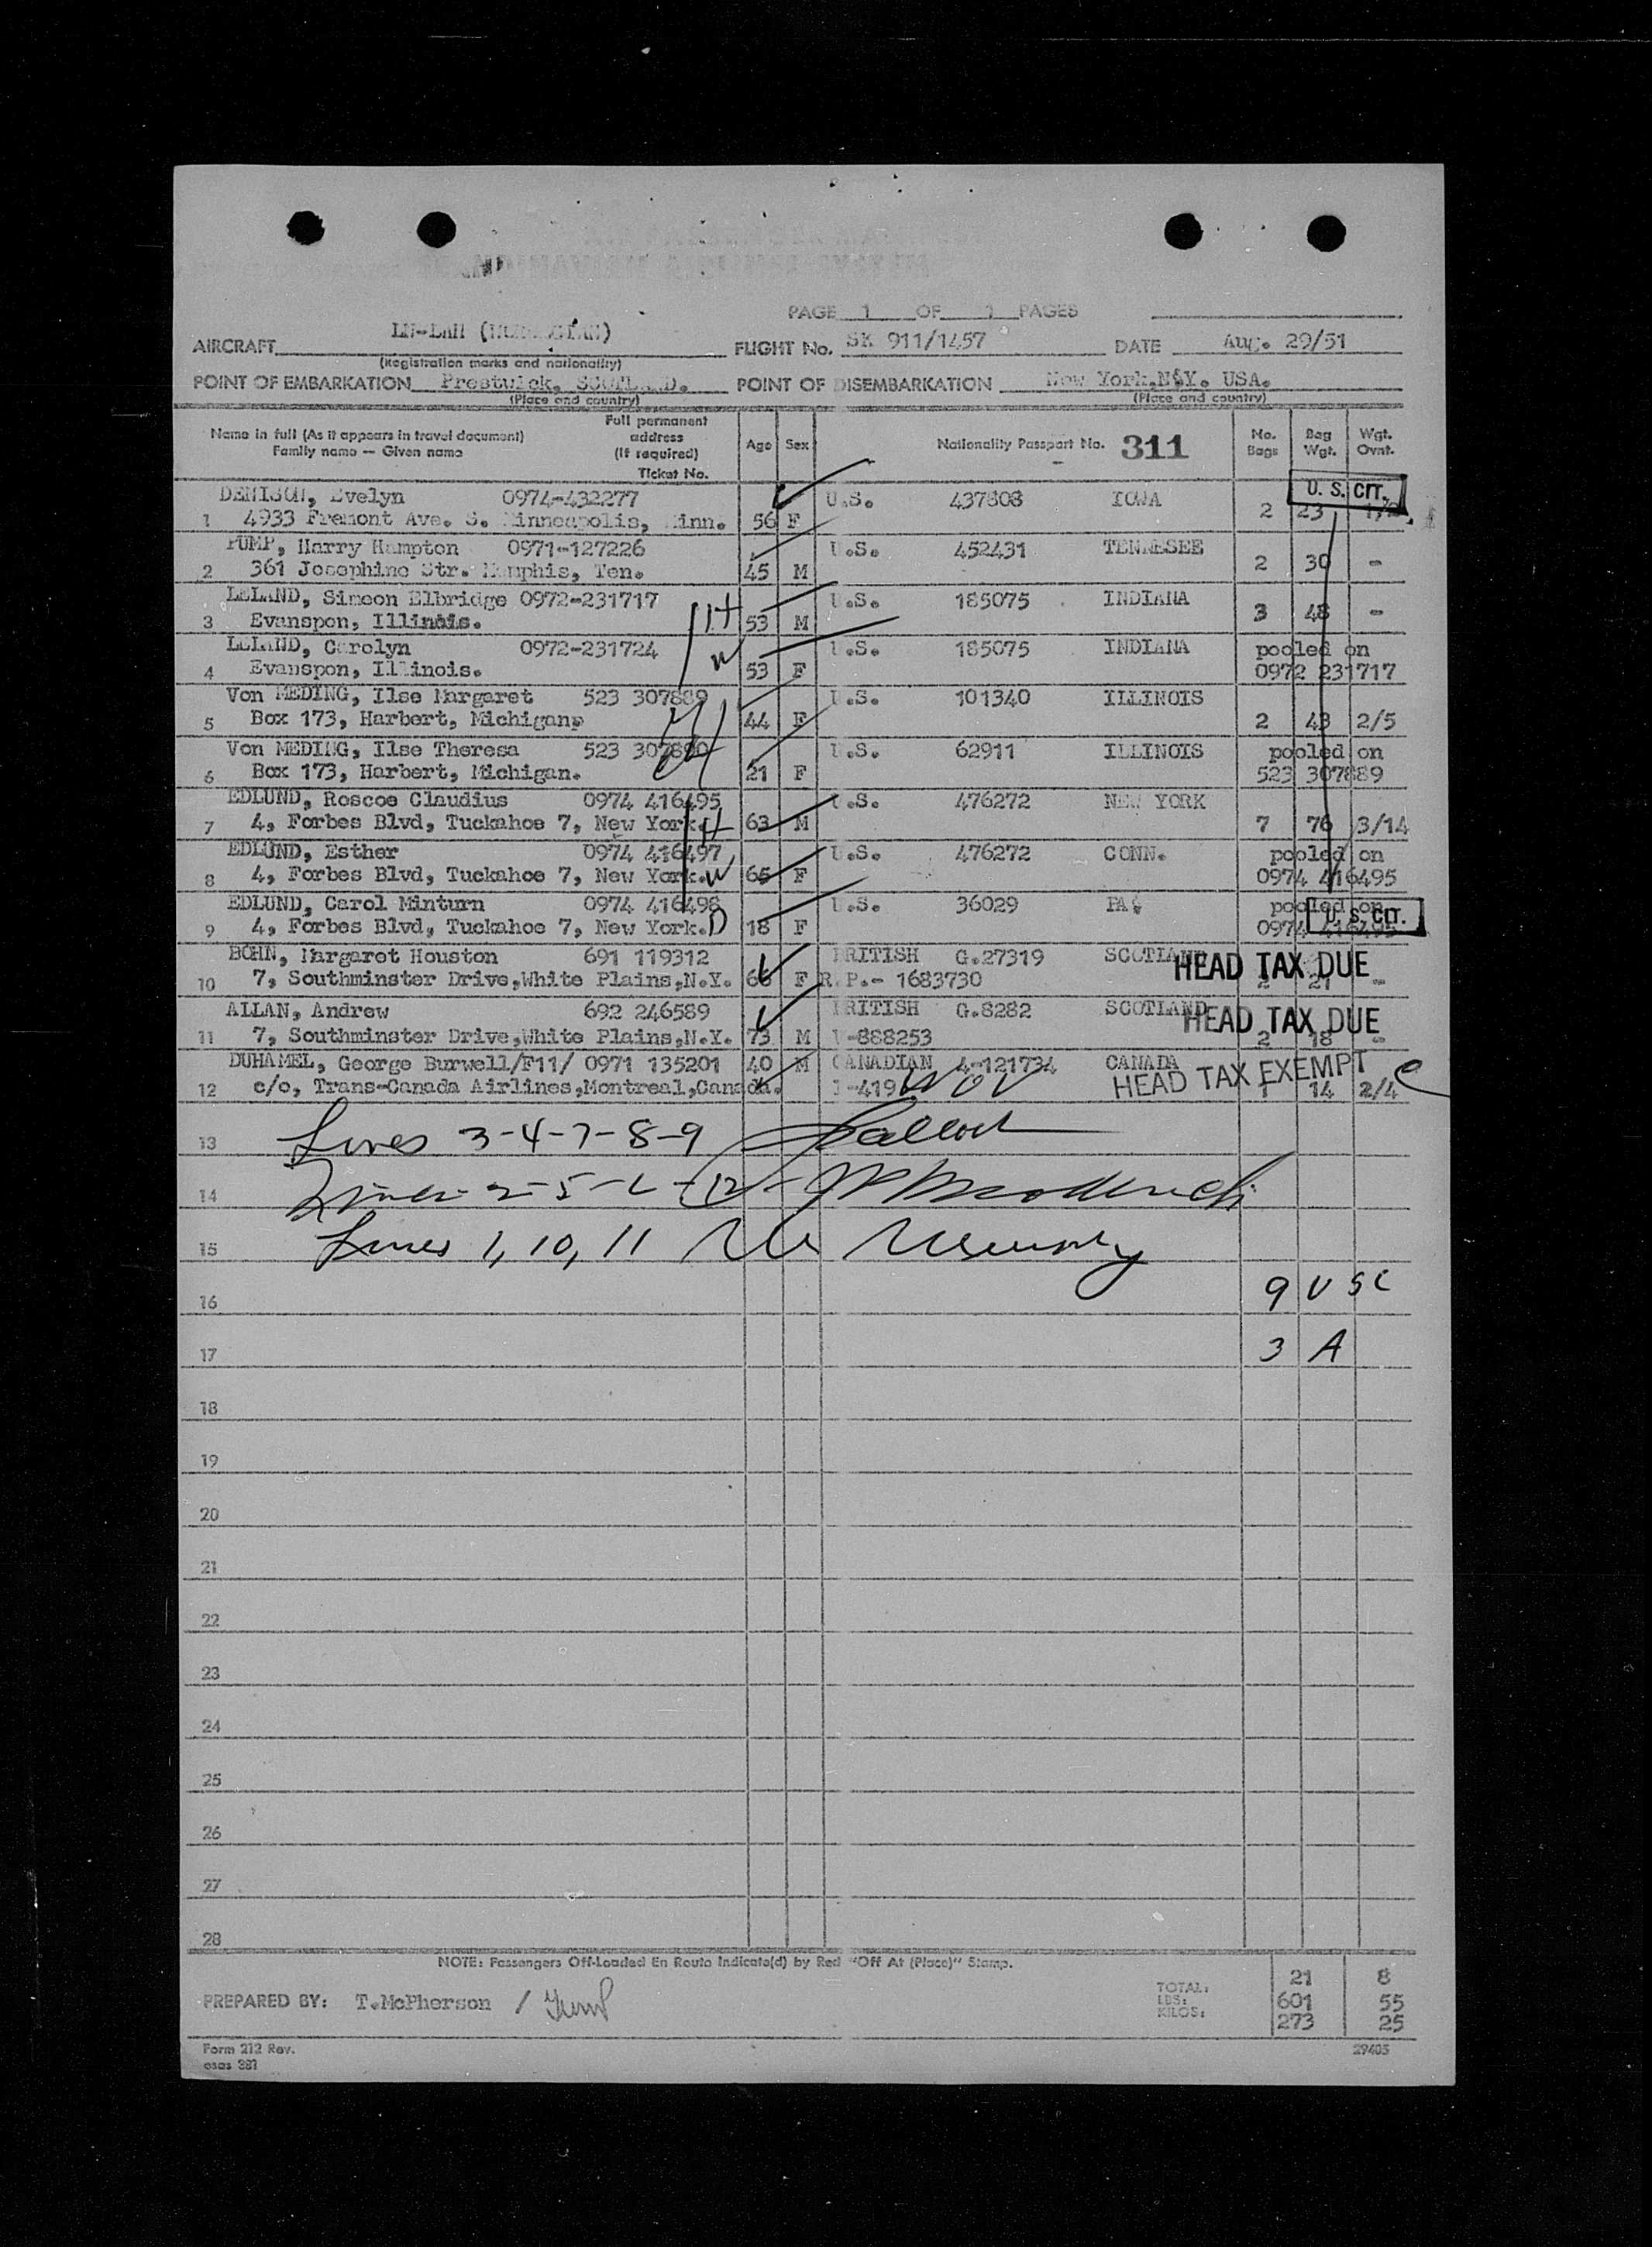 PAGE 1 OF 1 PAGES
AIRCRAFT LN-LAH (NORWEGIAN) FLIGHT No. SK 911/1457 DATE Aug. 29/51
(Registration marks and nationality)
POINT OF EMBARKATION Prestwick, SCOTLAND. POINT OF DISEMBARKATION New York,N.Y. USA.
(Place and country) (Place and country)
Name in full (As it appears in travel document) Family name — Given name Full permanent address (If required) Ticket No. Age Sex Nationality Passport No. 311 No. Bags Bag Wgt. Wgt. Ovnt.
DENISON, Evelyn 0974-432277 U.S. 437808 IOWA U. S. CIT.
1 4933 Fremont Ave. S. Minneapolis, Minn. 56 F 2 23
PUMP, Harry Hampton 0971-127226 U.S. 452431 TENNESEE
2 361 Josephine Str. Memphis, Ten. 45 M 2 30 -
LELAND, Simeon Elbridge 0972-231717 H U.S. 185075 INDIANA
3 Evanspon, Illinois. 53 M 3 48 -
LELAND, Carolyn 0972-231724 W U.S. 185075 INDIANA pooled on
4 Evanspon, Illinois. 53 F 0972 231717
Von MEDING, Ilse Margaret 523 307889 U.S. 101340 ILLINOIS
5 Box 173, Harbert, Michigan. 44 F 2 43 2/5
Von MEDING, Ilse Theresa 523 307890 U.S. 62911 ILLINOIS pooled on
6 Box 173, Harbert, Michigan. 21 F 523 307889
EDLUND, Roscoe Claudius 0974 416495 U.S. 476272 NEW YORK
7 4, Forbes Blvd, Tuckahoe 7, New York. H 63 M 7 76 3/14
EDLUND, Esther 0974 416497 U.S. 476272 CONN. pooled on
8 4, Forbes Blvd, Tuckahoe 7, New York. W 65 F 0974 416495
EDLUND, Carol Minturn 0974 416498 U.S. 36029 PA. pooled on
9 4, Forbes Blvd, Tuckahoe 7, New York. D 18 F 0974 416495 U. S. CIT.
BOHN, Margaret Houston 691 119312 BRITISH G.27319 SCOTLAND HEAD TAX DUE
10 7, Southminster Drive,White Plains,N.Y. 66 F R.P.- 1683730 2 21 -
ALLAN, Andrew 692 246589 BRITISH G.8282 SCOTLAND HEAD TAX DUE
11 7, Southminster Drive,White Plains,N.Y. 73 M V-888253 2 18 -
DUHAMEL, George Burwell/F11/ 0971 135201 40 M CANADIAN 4-121734 CANADA HEAD TAX EXEMPT
12 c/o, Trans-Canada Airlines,Montreal,Canada. I-419 WOV 1 14 2/4 C
13 Lines 3-4-7-8-9
14 Lines 2-5-6-12-
15 Lines 1, 10, 11
16 9 USC
17 3 A
18
19
20
21
22
23
24
25
26
27
28
NOTE: Passengers Off-Loaded En Route Indicate(d) by Red "Off At (Place)" Stamp.
TOTAL: 21 8
PREPARED BY: T.McPherson / LBS: 601 55
KILOS: 273 25
Form 212 Rev. 29405
esas 281